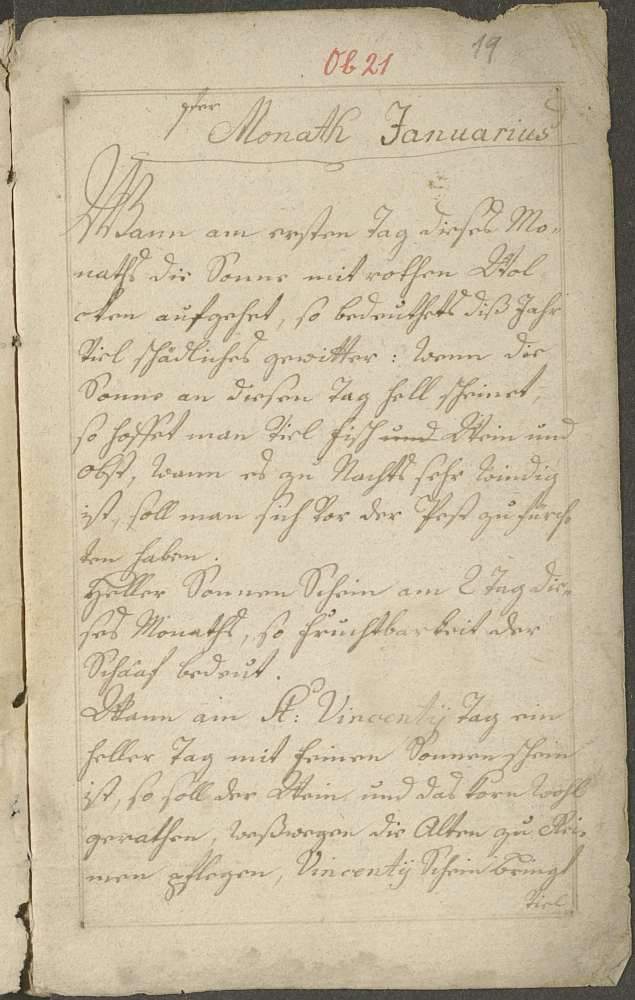 19
Ob 21
1ster Monath Januarius
Wann am ersten Tag dieses Mo=
naths die Sonne mit rothen Wol
cken aufgehet, so bedeuthets diß Jahr
Viel schädliches gewitter: wenn die
Sonne an diesen Tag hell scheinet,
so hoffet man Viel fisch und Wein und
obst, wann es zu Nachts sehr windig
ist, soll man sich Vor der Pest zu fürch
ten haben.
Heller Sonnen Schein am 2 Tag die=
ses Monaths, so fruchtbarkeit der
Schaaf bedeut.
Wann am St: Vincentij Tag ein
heller Tag mit feinen Sonnenschein
ist, so soll der Wein und das korn wohl
gerathen, weßwegen die Alten zu Rei=
men pflegen, Vincentij Schein bringt
Viel